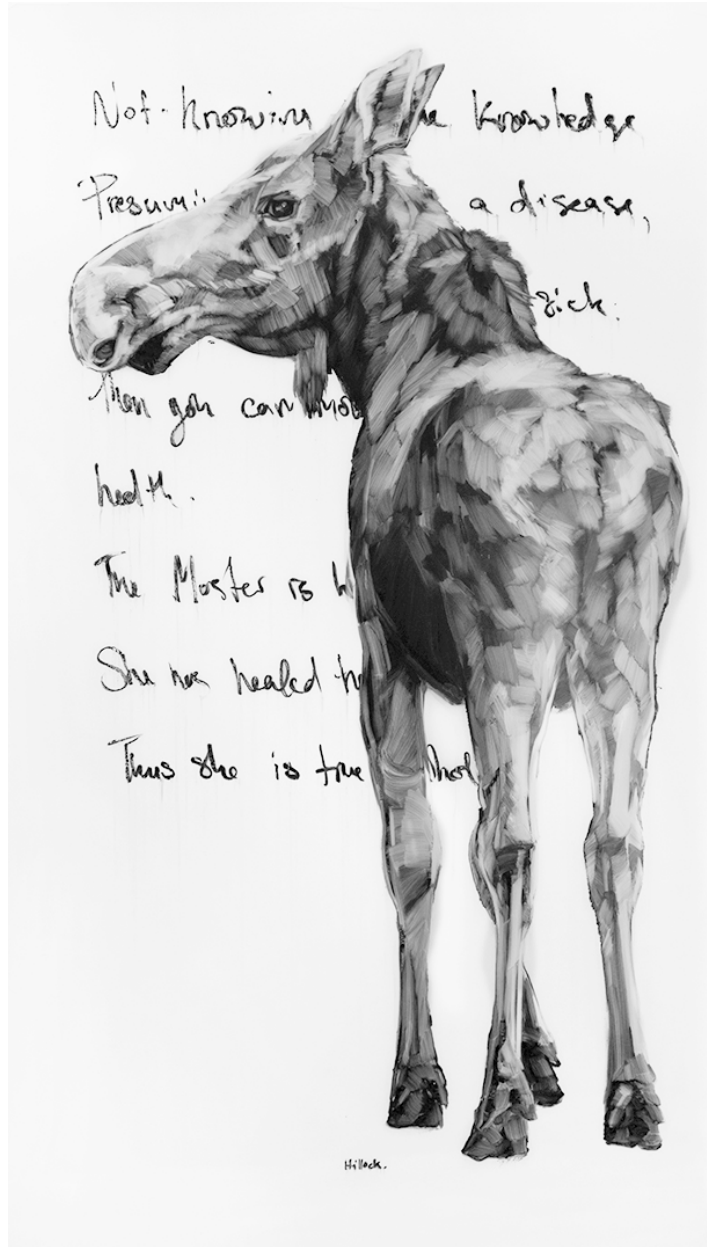 Not-knowin ue knowledge
Presumi a disease,
sick.
Then you can mov
health.
The Master is h
She has healed h
Thus she is true whol
Hillock.